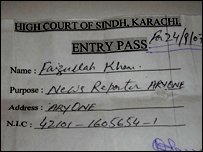 HIGH COURT OF SINDH, KARACHI
ENTRY PASS For 24/9/07
Name : Faizullah Khan.
Purpose : News Reporter ARYONE
Address : ARYONE
N.I.C : 42101-1605654-1